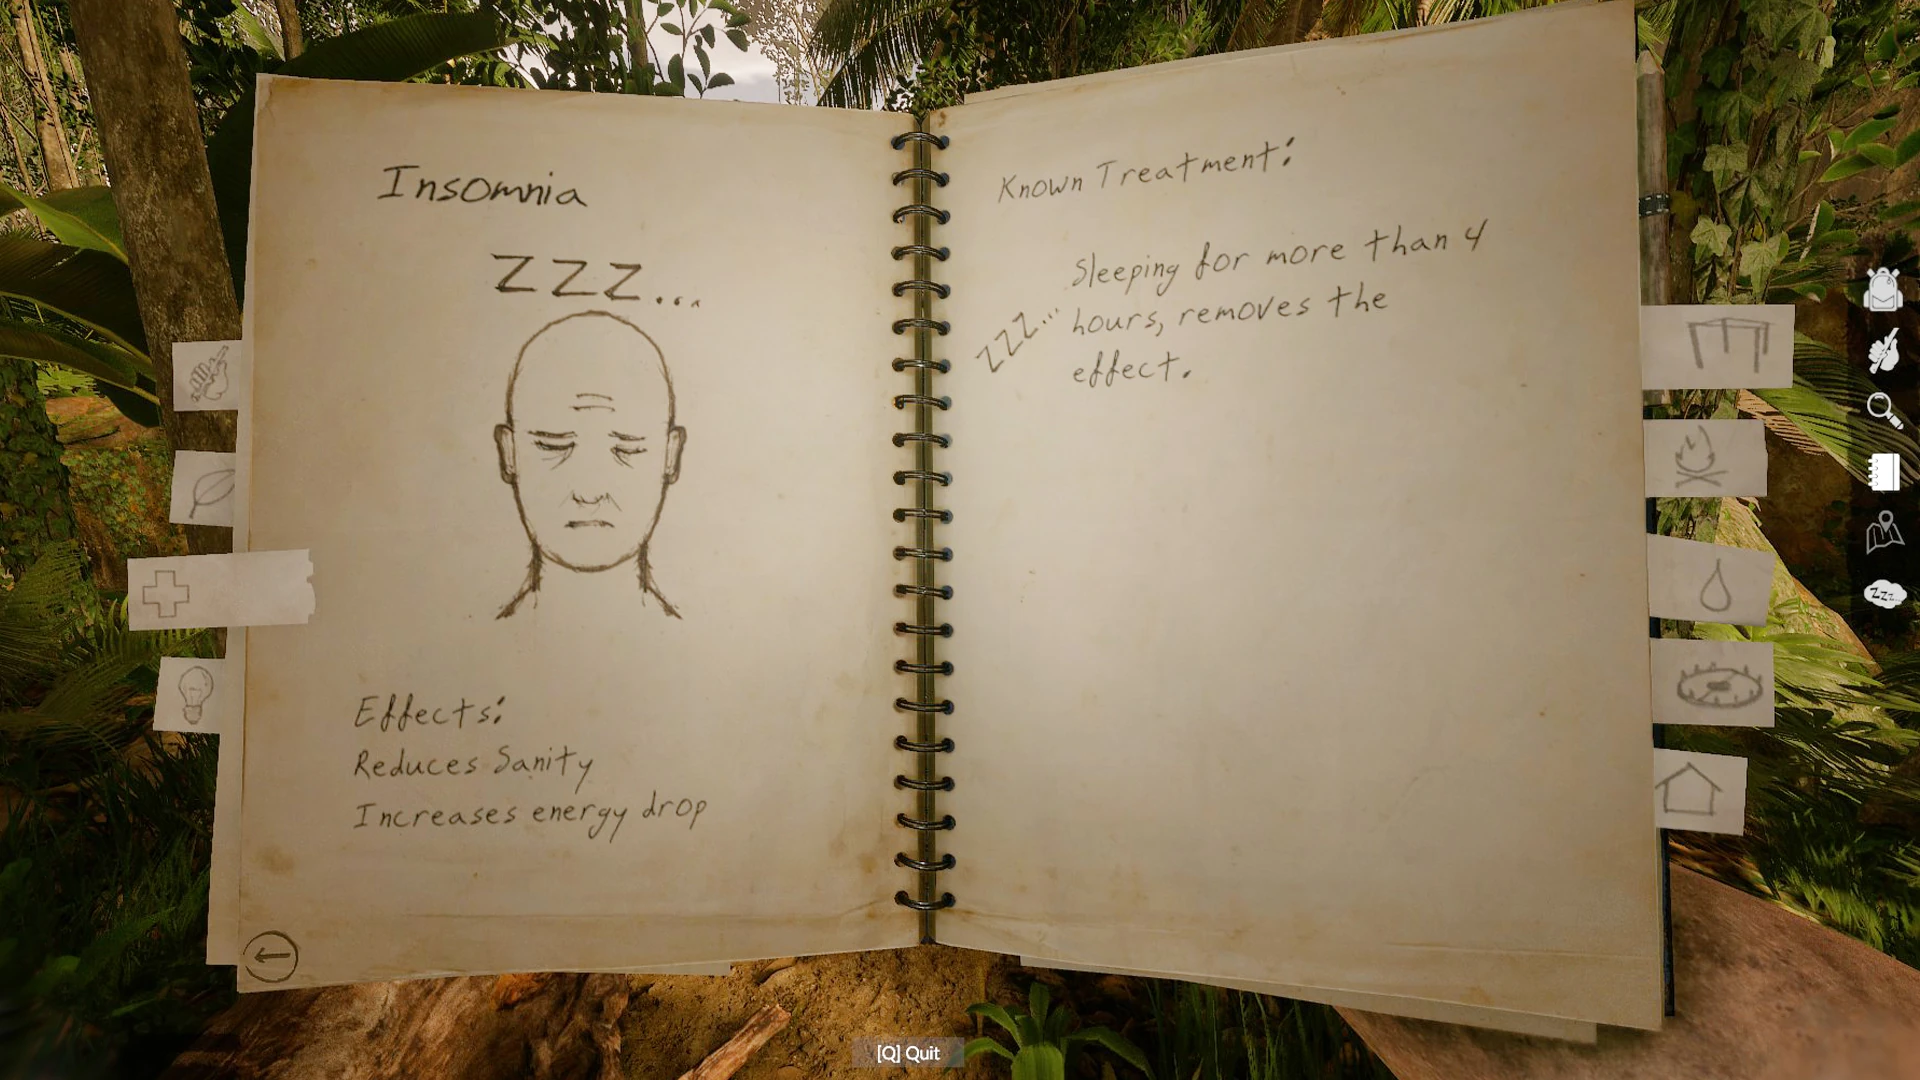 Insomnia
ZZZ...
Effects:
Reduces Sanity
Increases energy drop
Known Treatment:
Sleeping for more than 4
hours, removes the
effect.
ZZZ...
Zzz...
[Q] Quit